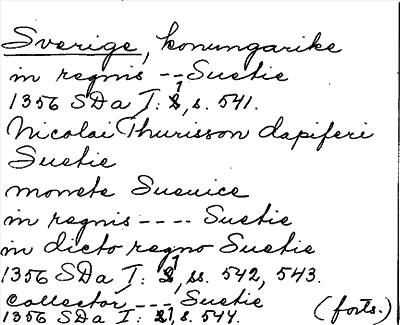 Sverige, konungarike
in regnis -- Suetie
1356 SDa I: 1, s. 541.
Nicolai Thurisson dapiferi
Suetie
monete Sueuice
in regnis ---- Suetie
in dicto regno Suetie
1356 SDa I: 1, ss. 542, 543.
collector --- Suetie
1356 SDa I: 1, s. 544. (forts.)